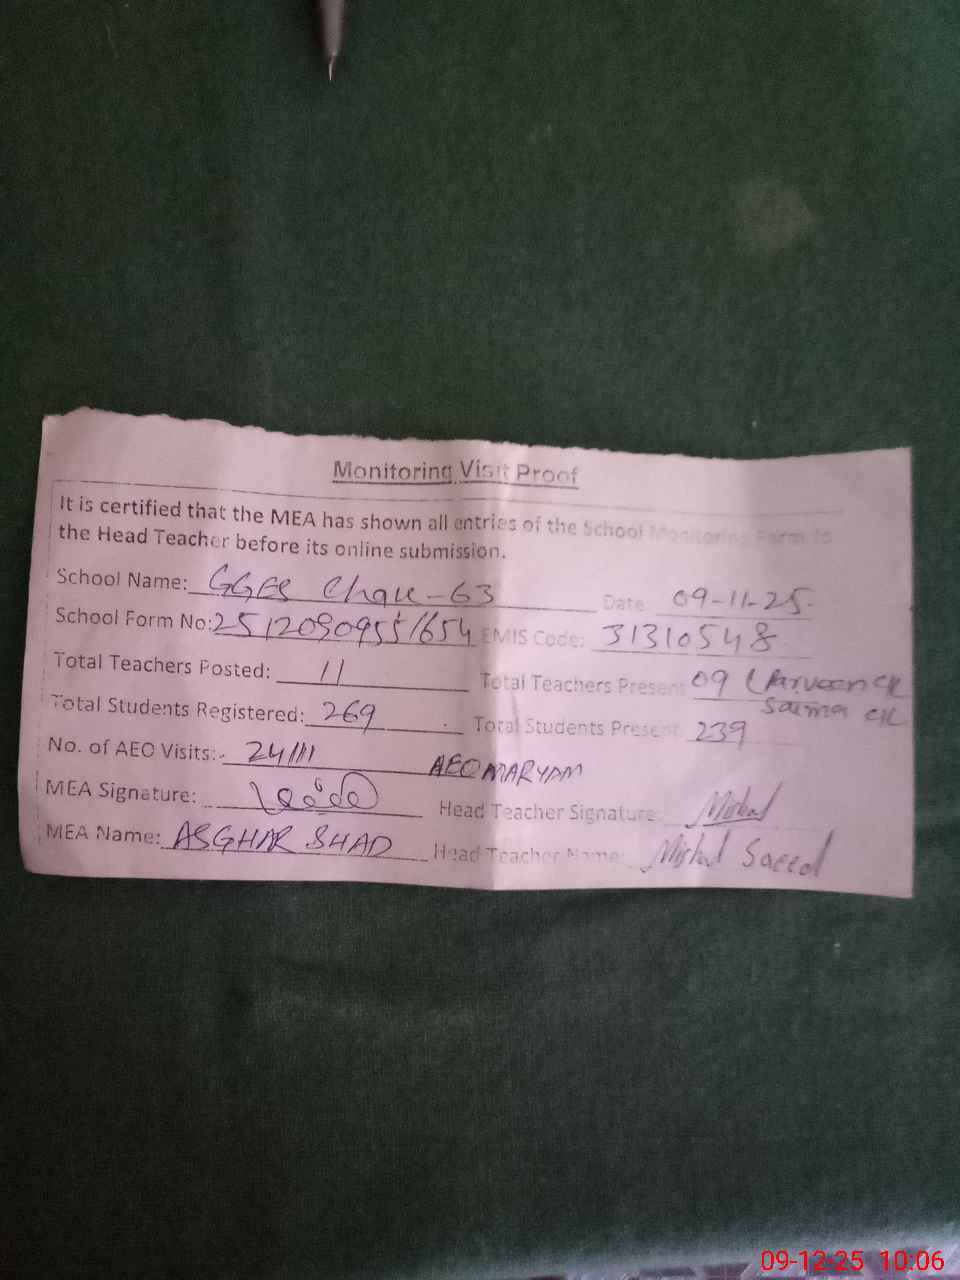 Monitoring Visit Proof
It is certified that the MEA has shown all entries of the School Monitoring Form to
the Head Teacher before its online submission.
School Name: GGES Chak-63 Date: 09-11-25
School Form No: EMIS Code: 31310548
Total Teachers Posted: 11 Total Teachers Present 09 (Parveen C/L
Saima C/L
Total Students Registered: 269 Total Students Present: 239
No. of AEO Visits: AEO MARYAM
MEA Signature: Head Teacher Signature:
MEA Name: ASGHAR SHAD Head Teacher Name: Saeed
09-12-25 10:06